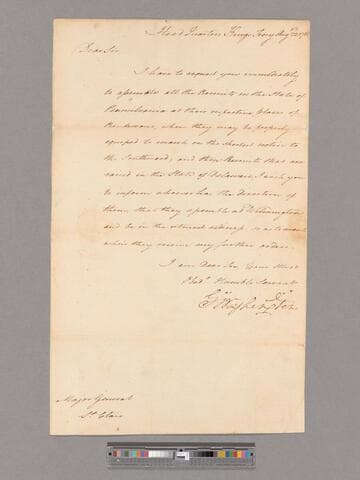 Head Quarters Kings Ferry Aug
Dear Sir
I have to request you immediately
to assemble all the Recruits in the State of
Pennsilvania at their respective places of
Rendezvous, where they may be properly
equiped to march on the shortest notice to
the Southward; and those Recruits that are
raised in the State of Delaware, I wish you
to inform whoever has the direction of
them, that they assemble at Wilmington
and be in the utmost readiness so as to move
when they receive any further orders.
I am Dear Sir Your Most
Obedt Humble Servant
Go Washington
Major General
St Clair